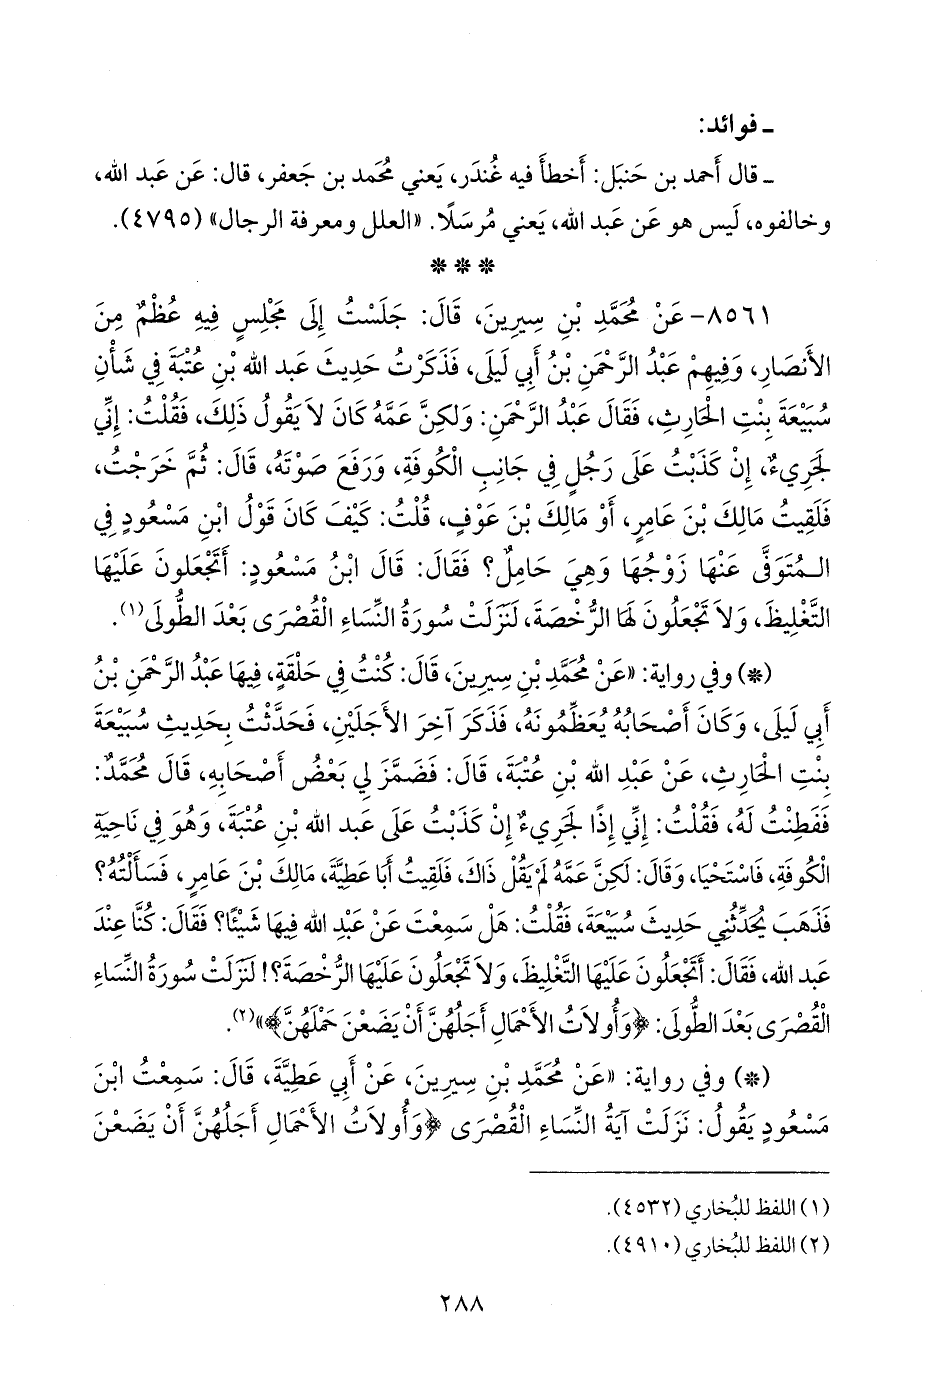 ـ فوائد:
ـ قال أَحمد بن حَنبَل: أَخطأَ فيه غُندَر، يَعني مُحمد بن جَعفر، قال: عَن عَبد الله،
وخالفوه، لَيس هو عَن عَبد الله، يَعني مُرسَلًا. «العلل ومعرفة الرجال» (٤٧٩٥).
* * *
٨٥٦١- عَنْ مُحَمَّدِ بْنِ سِيرِينَ، قَالَ: جَلَسْتُ إِلَى مَجْلِسٍ فِيهِ عُظْمٌ مِنَ
الأَنْصَارِ، وَفِيهِمْ عَبْدُ الرَّحْمَنِ بْنُ أَبِي لَيلَى، فَذَكَرْتُ حَدِيثَ عَبد الله بْنِ عُتْبَةَ فِي شَأْنِ
سُبَيْعَةَ بِنْتِ الْحَارِثِ، فَقَالَ عَبْدُ الرَّحْمَنِ: وَلَكِنَّ عَمَّهُ كَانَ لاَ يَقُولُ ذَلِكَ، فَقُلْتُ: إِنِّي
لَجَرِيءٌ، إِنْ كَذَبْتُ عَلَى رَجُلٍ فِي جَانِبِ الْكُوفَةِ، وَرَفَعَ صَوْتَهُ، قَالَ: ثُمَّ خَرَجْتُ،
فَلَقِيتُ مَالِكَ بْنَ عَامِرٍ، أَوْ مَالِكَ بْنَ عَوْفٍ، قُلْتُ: كَيْفَ كَانَ قَوْلُ ابْنِ مَسْعُودٍ فِي
الـمُتَوَفَّى عَنْهَا زَوْجُهَا وَهِيَ حَامِلٌ؟ فَقَالَ: قَالَ ابْنُ مَسْعُودٍ: أَتَجْعَلُونَ عَلَيْهَا
التَّغْلِيظَ، وَلاَ تَجْعَلُونَ لَهَا الرُّخْصَةَ، لَنَزَلَتْ سُورَةُ النِّسَاءِ الْقُصْرَى بَعْدَ الطُّولَى(١).
(*) وفي رواية: «عَنْ مُحَمَّدِ بْنِ سِيرِينَ، قَالَ: كُنْتُ فِي حَلْقَةٍ، فِيهَا عَبْدُ الرَّحْمَنِ بْنُ
أَبِي لَيلَى، وَكَانَ أَصْحَابُهُ يُعَظِّمُونَهُ، فَذَكَرَ آخِرَ الأَجَلَيْنِ، فَحَدَّثْتُ بِحَدِيثِ سُبَيْعَةَ
بِنْتِ الْحَارِثِ، عَنْ عَبْدِ الله بْنِ عُتْبَةَ، قَالَ: فَضَمَّزَ لِي بَعْضُ أَصْحَابِهِ، قَالَ مُحَمَّدٌ:
فَفَطِنْتُ لَهُ، فَقُلْتُ: إِنِّي إِذًا لَجَرِيءٌ إِنْ كَذَبْتُ عَلَى عَبد الله بْنِ عُتْبَةَ، وَهُوَ فِي نَاحِيَةِ
الْكُوفَةِ، فَاسْتَحْيَا، وَقَالَ: لَكِنَّ عَمَّهُ لَمْ يَقُلْ ذَاكَ، فَلَقِيتُ أَبَا عَطِيَّةَ، مَالِكَ بْنَ عَامِرٍ، فَسَأَلْتُهُ؟
فَذَهَبَ يُحَدِّثُنِي حَدِيثَ سُبَيْعَةَ، فَقُلْتُ: هَلْ سَمِعْتَ عَنْ عَبْدِ الله فِيهَا شَيْئًا؟ فَقَالَ: كُنَّا عِنْدَ
عَبد الله، فَقَالَ: أَتَجْعَلُونَ عَلَيْهَا التَّغْلِيظَ، وَلاَ تَجْعَلُونَ عَلَيْهَا الرُّخْصَةَ؟! لَنَزَلَتْ سُورَةُ النِّسَاءِ
الْقُصْرَى بَعْدَ الطُّولَى: ﴿وَأُولاَتُ الأَحْمَالِ أَجَلُهُنَّ أَنْ يَضَعْنَ حَمْلَهُنَّ﴾»(٢).
(*) وفي رواية: «عَنْ مُحَمَّدِ بْنِ سِيرِينَ، عَنْ أَبِي عَطِيَّةَ، قَالَ: سَمِعْتُ ابْنَ
مَسْعُودٍ يَقُولُ: نَزَلَتْ آيَةُ النِّسَاءِ الْقُصْرَى ﴿وَأُولاَتُ الأَحْمَالِ أَجَلُهُنَّ أَنْ يَضَعْنَ
(١) اللفظ للبُخاري (٤٥٣٢).
(٢) اللفظ للبُخاري (٤٩١٠).
٢٨٨